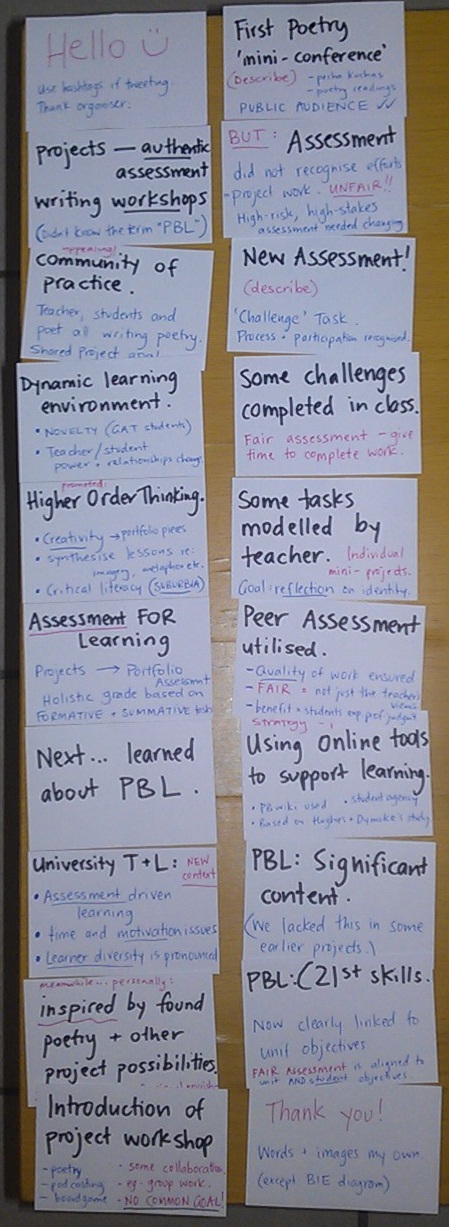 Hello
Use hashtags if tweeting.
Thank organiser.
Projects — authentic
assessment
writing workshops
(Didn't know the term "PBL")
appealing!
Community of
practice.
Teacher, students and
poet all writing poetry.
Shared Project goal
Dynamic learning
environment.
• NOVELTY (GAT students)
• Teacher/student
power + relationships change.
promoted:
Higher Order Thinking.
• Creativity → portfolio pieces
• synthesise lessons re:
imagery, metaphor etc.
• Critical literacy (SUBURBIA)
Assessment FOR
Learning
Projects → Portfolio
Assessmt
Holistic grade based on
FORMATIVE + SUMMATIVE tasks
Next... learned
about PBL.
University T+L: NEW
context
• Assessment driven
learning
• time and motivation issues
• Learner diversity is pronounced
meanwhile... personally:
inspired by found
poetry + other
project possibilities.
Introduction of
project workshop
- poetry
- podcasting
- boardgame
- some collaboration.
- eg. group work.
- NO COMMON GOAL!
First Poetry
'mini-conference'
(Describe) - pecha kuchas
- poetry readings
PUBLIC AUDIENCE ✓✓
BUT: Assessment
did not recognise efforts
- project work. UNFAIR!!
High-risk, high-stakes
assessment needed changing
New Assessment!
(describe)
'Challenge' Task.
Process + participation recognised.
Some challenges
completed in class.
Fair assessment - give
time to complete work.
Some tasks
modelled by
teacher. Individual
mini-projects.
Goal: reflection on identity.
Peer Assessment
utilised.
- Quality of work ensured
- FAIR = not just the teacher's
views
- benefit = students exp prof judgmt
strategy
Using Online tools
to support learning.
• PBwiki used • student agency
• Based on Hughes + Dymoke's study.
PBL: Significant
content.
(We lacked this in some
earlier projects.)
PBL: (21st skills.
Now clearly linked to
unit objectives
FAIR Assessment is aligned to
unit AND student objectives.
Thank you!
Words + images my own.
(except BIE diagram)